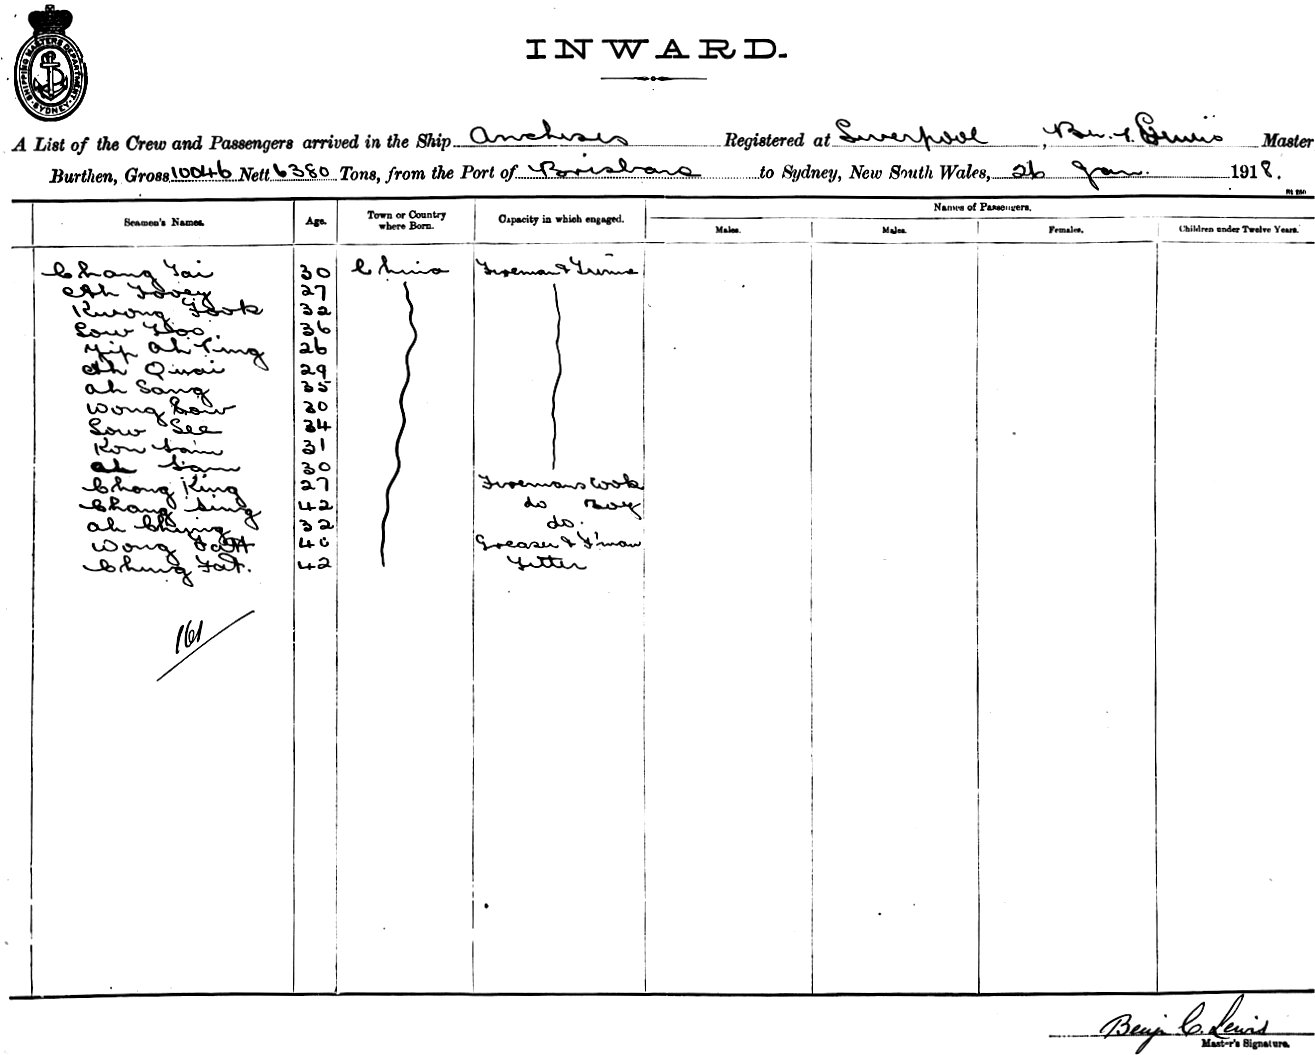 SHIPPING MASTERS DEPARTMENT SYDNEY
INWARD.
A List of the Crew and Passengers arrived in the Ship Anchises Registered at Liverpool, Lewis Master
Burthen, Gross 10046 Nett 6380 Tons, from the Port of Brisbane to Sydney, New South Wales, 26 Jan. 1918.
Names of Passengers.
Seamen's Names. Age. Town or Country where Born. Capacity in which engaged. Males. Males. Females. Children under Twelve Years.
Chang Tai 30 China Fireman &
Ah 27
Kwong Fook 32
Low 36
Yip Ah Ping 26
Ah Quai 29
Ah Sang 35
Wong Low 30
Low See 34
Kon Sam 31
Ah Sam 30
Chong King 27 Firemans Cook
Chang Sing 42 do Boy
Ah Chung 32 do.
Wong Fatt 40 Greaser & F'man
Chung Fat. 42 Fitter
161
Benj C. Lewis
Master's Signature.